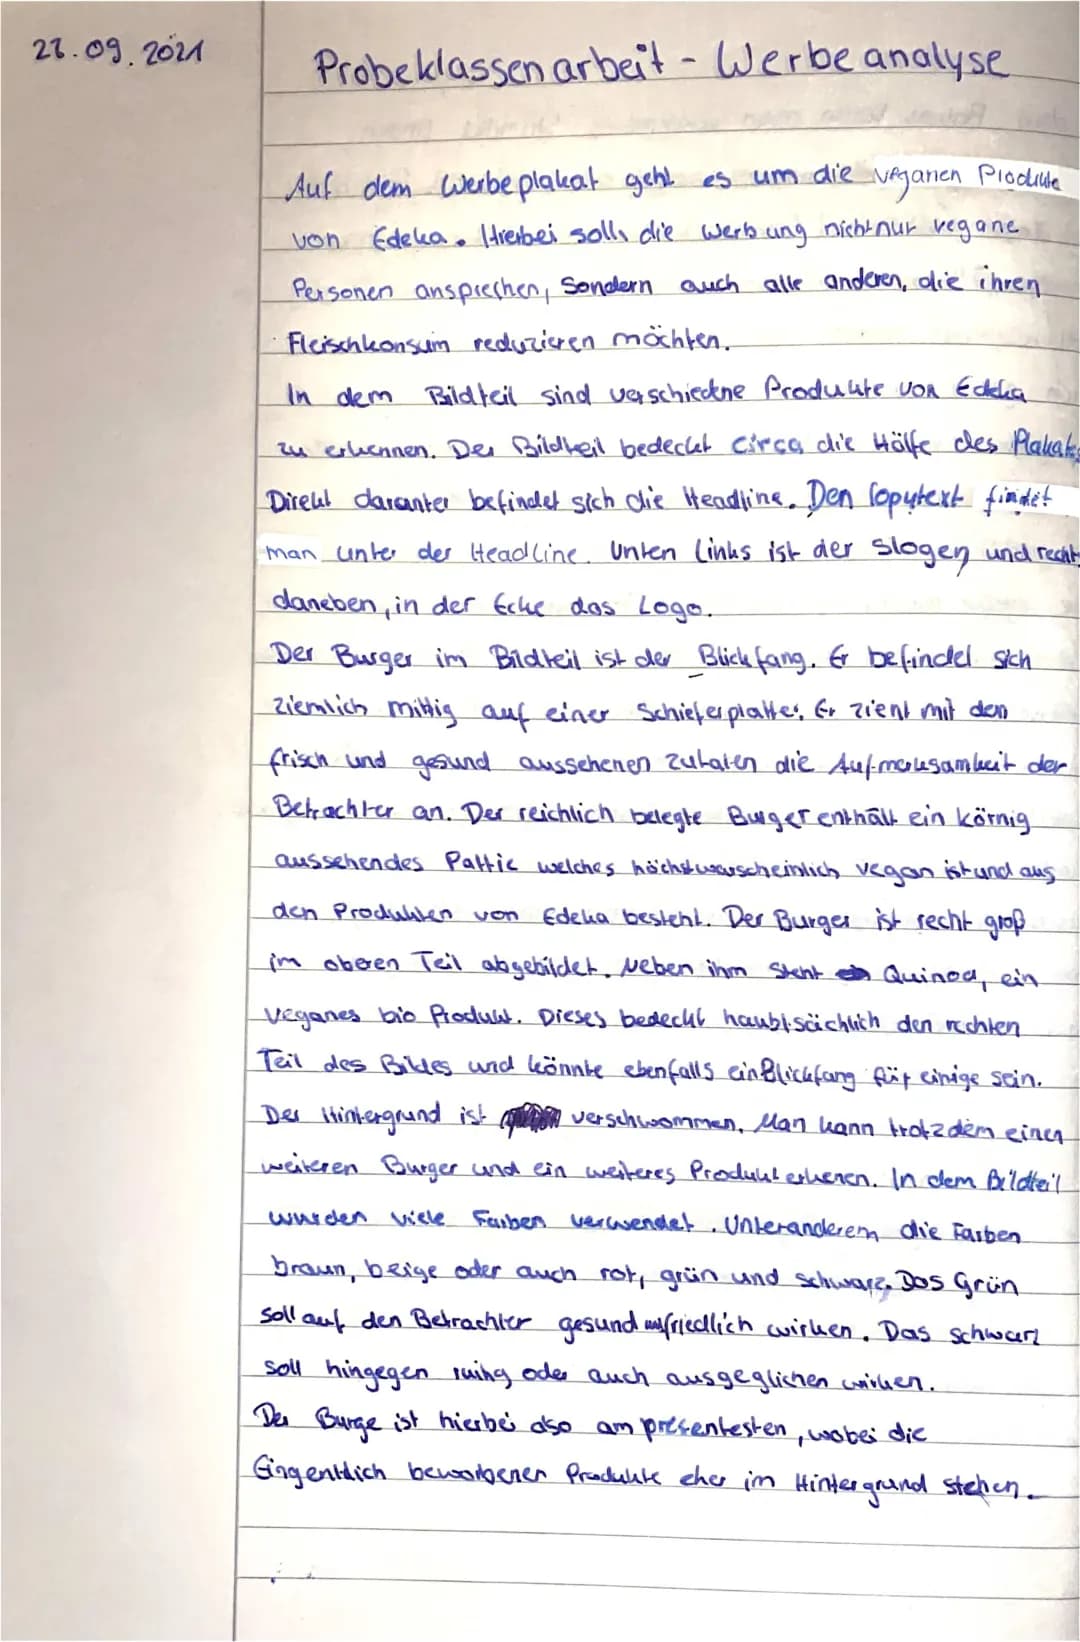 28.09.2021
Probeklassenarbeit - Werbeanalyse
Auf dem Werbeplakat geht es um die veganen Produkte
von Edeka. Hierbei soll die Werbung nicht nur vegane
Personen ansprechen, Sondern auch alle anderen, die ihren
Fleischkonsum reduzieren möchten.
In dem Bildteil sind verschiedne Produkte von Edeka
zu erkennen. Der Bildteil bedeckt circa die Hälfe des Plakats
Direkt darunter befindet sich die Headline. Den Copytext findet
man unter der Headline. Unten Links ist der Slogen und rechts
daneben, in der Ecke das Logo.
Der Burger im Bildteil ist der Blickfang. Er befindet sich
ziemlich mittig auf einer Schieferplatte. Er zieht mit den
frisch und gesund aussehenen Zutaten die Aufmerksamkeit der
Betrachter an. Der reichlich belegte Burger enthält ein körnig
aussehendes Pattie welches höchstwarscheinlich vegan ist und aus
den Produkten von Edeka besteht. Der Burger ist recht groß
im oberen Teil abgebildet. Neben ihm steht Quinoa, ein
veganes bio Produkt. Dieses bedeckt haubtsächlich den rechten
Teil des Bildes und könnte ebenfalls ein Blickfang für einige sein.
Der Hintergrund ist verschwommen. Man kann trotzdem einen
weiteren Burger und ein weiteres Produkt erkenen. In dem Bildteil
wurden viele Farben verwendet. Unteranderem die Farben
braun, beige oder auch rot, grün und schwarz. Das Grün
soll auf den Betrachter gesund friedlich wirken. Das schwarz
soll hingegen ruihg oder auch ausgeglichen wirken.
Der Burge ist hierbei also am presentesten, wobei die
Eingentlich beworbenen Produkte eher im Hintergrund stehen.